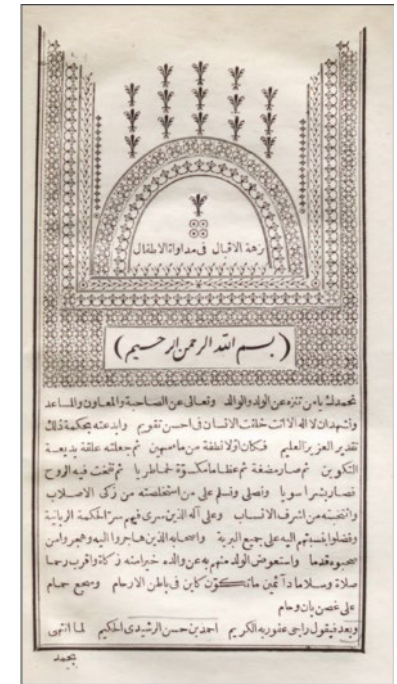 نزهة الاقبال فى مداواة الاطفال
(بسم الله الرحمن الرحيم)
نحمدك يا من تنزه عن الولد والوالد وتعالى عن الصاحبة والمعاون والمساعد
ونشهد ان لا اله الا انت خلقت الانسان فى احسن تقويم وابدعته بحكمة ذلك
تقدير العزيز العليم فكان اولا نطفة من ماء مهين ثم جعلته علقة بديعة
التكوين ثم صار مضغة ثم عظاما مكسوة لحما طريا ثم نفخت فيه الروح
فصار بشرا سويا ونصلى ونسلم على من استخلصته من زكى الاصلاب
وانتخبته من اشرف الانساب وعلى آله الذين سرى فيهم سر الحكمة الربانية
وفضلوا بنسبتهم اليه على جميع البرية واصحابه الذين هاجروا اليه وهجروا من
صحبوه قدما واستعوض الولد منهم به عن والده خيرا منه زكاة واقرب رحما
صلاة وسلاما دآئمين ما تكون كاين فى باطن الارحام وسجع حمام
على غصن بان وحام
وبعد فيقول راجى عفو ربه الكريم احمد بن حسن الرشيدى الحكيم لما انتهى
بحمد